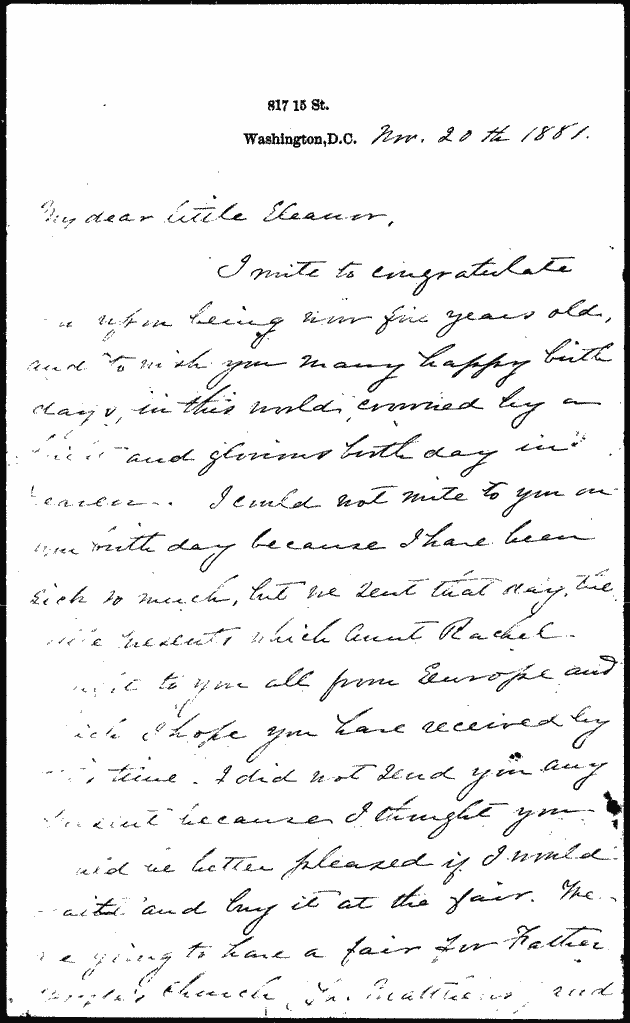 817 15 St.
Washington, D.C. Nov. 20th 1881.
My dear little Eleanor,
I write to congratulate
upon being now five years old,
and to wish you many happy birth
days, in this world, crowned by a
and glorious birth day in
heaven. I could not write to you on
your birth day because I have been
sick so much, but we sent that day, the
little presents which Aunt Rachel
to you all from Europe and
which I hope you have received by
this time. I did not send you any
present because I thought you
would be better pleased if I would
wait and buy it at the fair. We
are going to have a fair for Father
church, St. Matthews, and